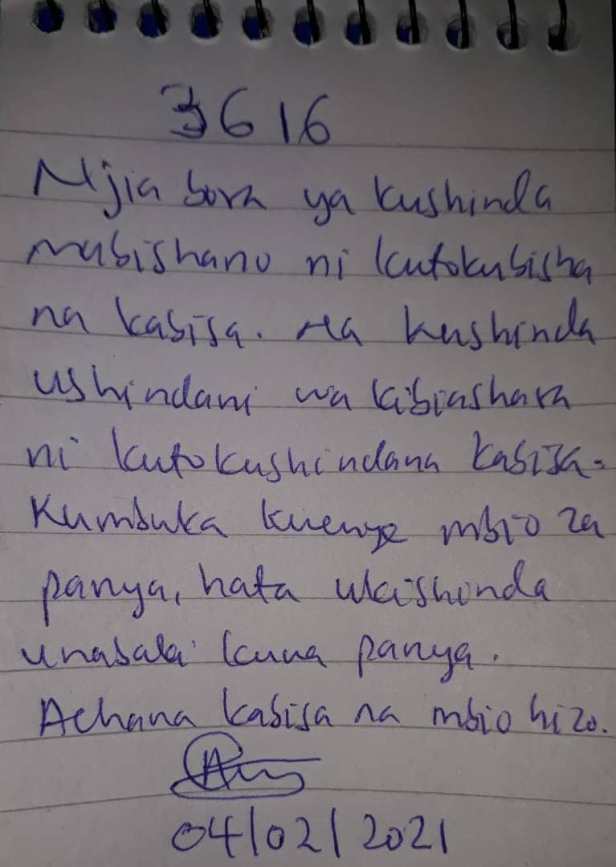 3616
Njia bora ya kushinda
mabishano ni kutokubisha
na kabisa. Na kushinda
ushindani wa kibiashara
ni kutokushindana kabisa.
Kumbuka kwenye mbio za
panya, hata ukishinda
unabaki kuwa panya.
Achana kabisa na mbio hizo.
04/02/2021